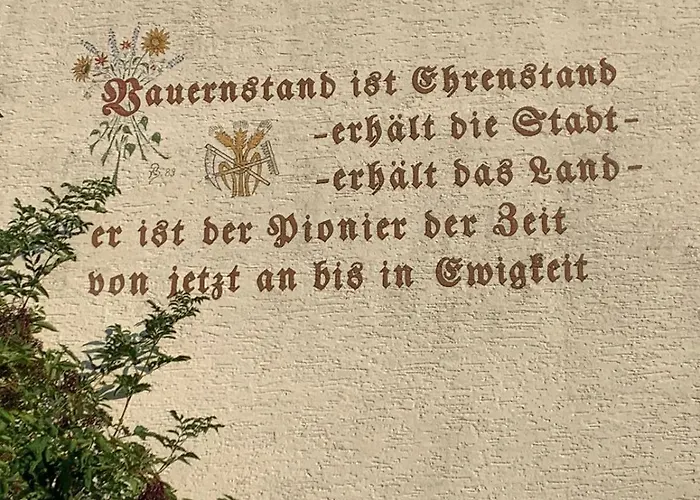 Bauernstand ist Ehrenstand
-erhält die Stadt-
-erhält das Land-
er ist der Pionier der Zeit
von jetzt an bis in Ewigkeit
83